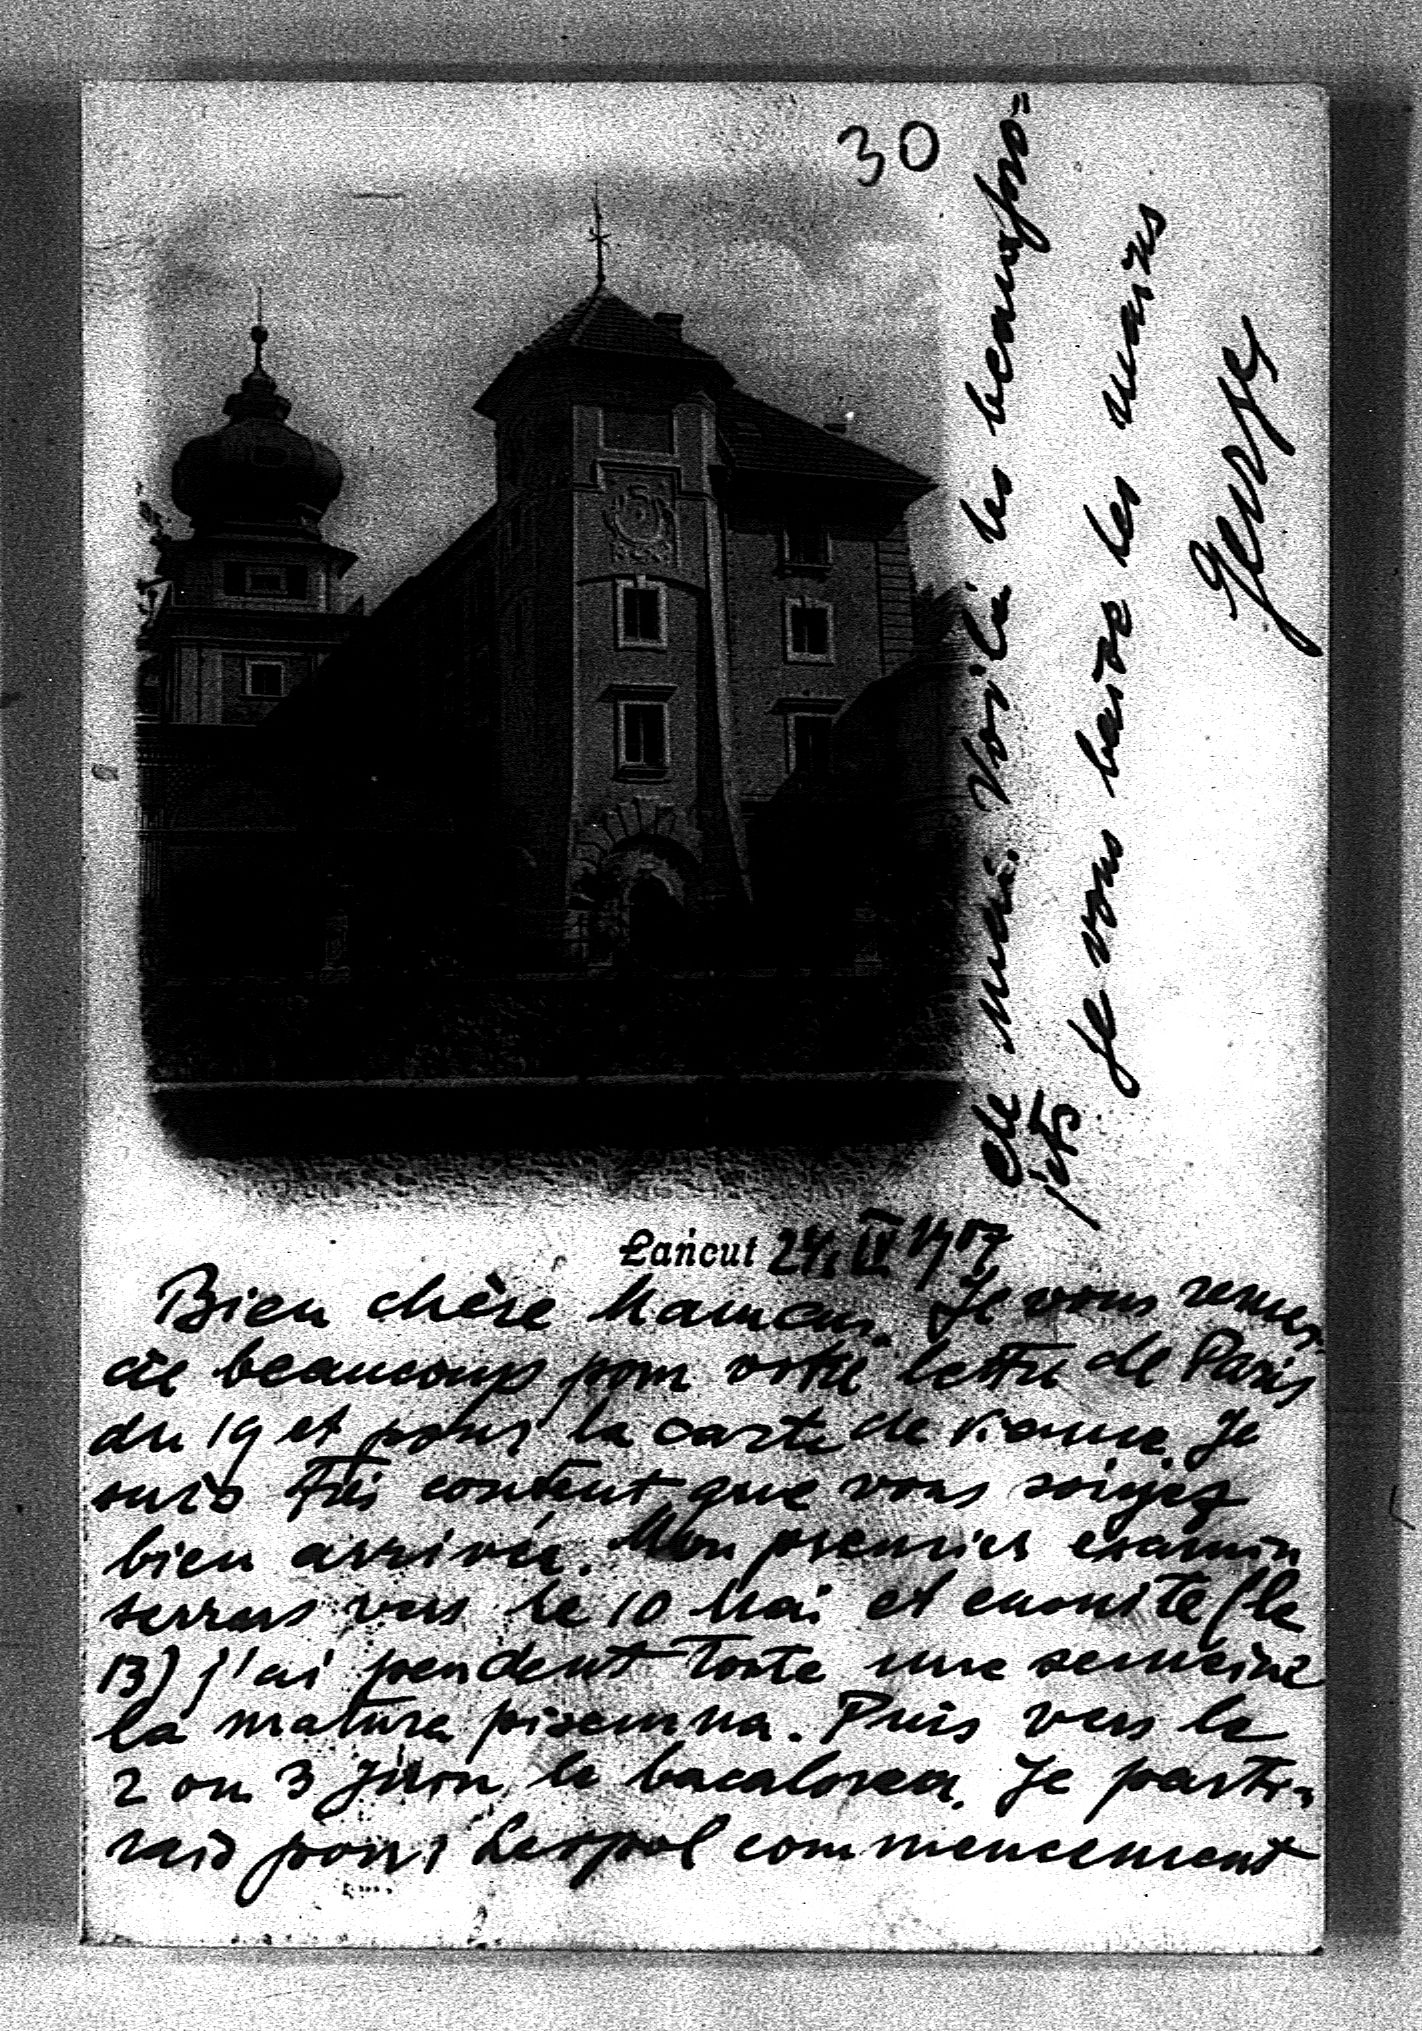 30
Łańcut 24 IV 1907
Bien chère Maman. Je vous remer-
cie beaucoup pour votre lettre de Paris
du 19 et pour la carte de Vienne. Je
suis très content que vous soiyez
bien arrivée. Mon premier examin
serras vers le 10 Mai et ensuite (le
13) j'ai pendent toute une semeine
la matura pisemna. Puis vers le
2 ou 3 Juin le bacaloreat. Je parti-
rais pour Lespol commencement
de Mai. Voilà les beaux pro=
jets
Je vous baise les mains
George